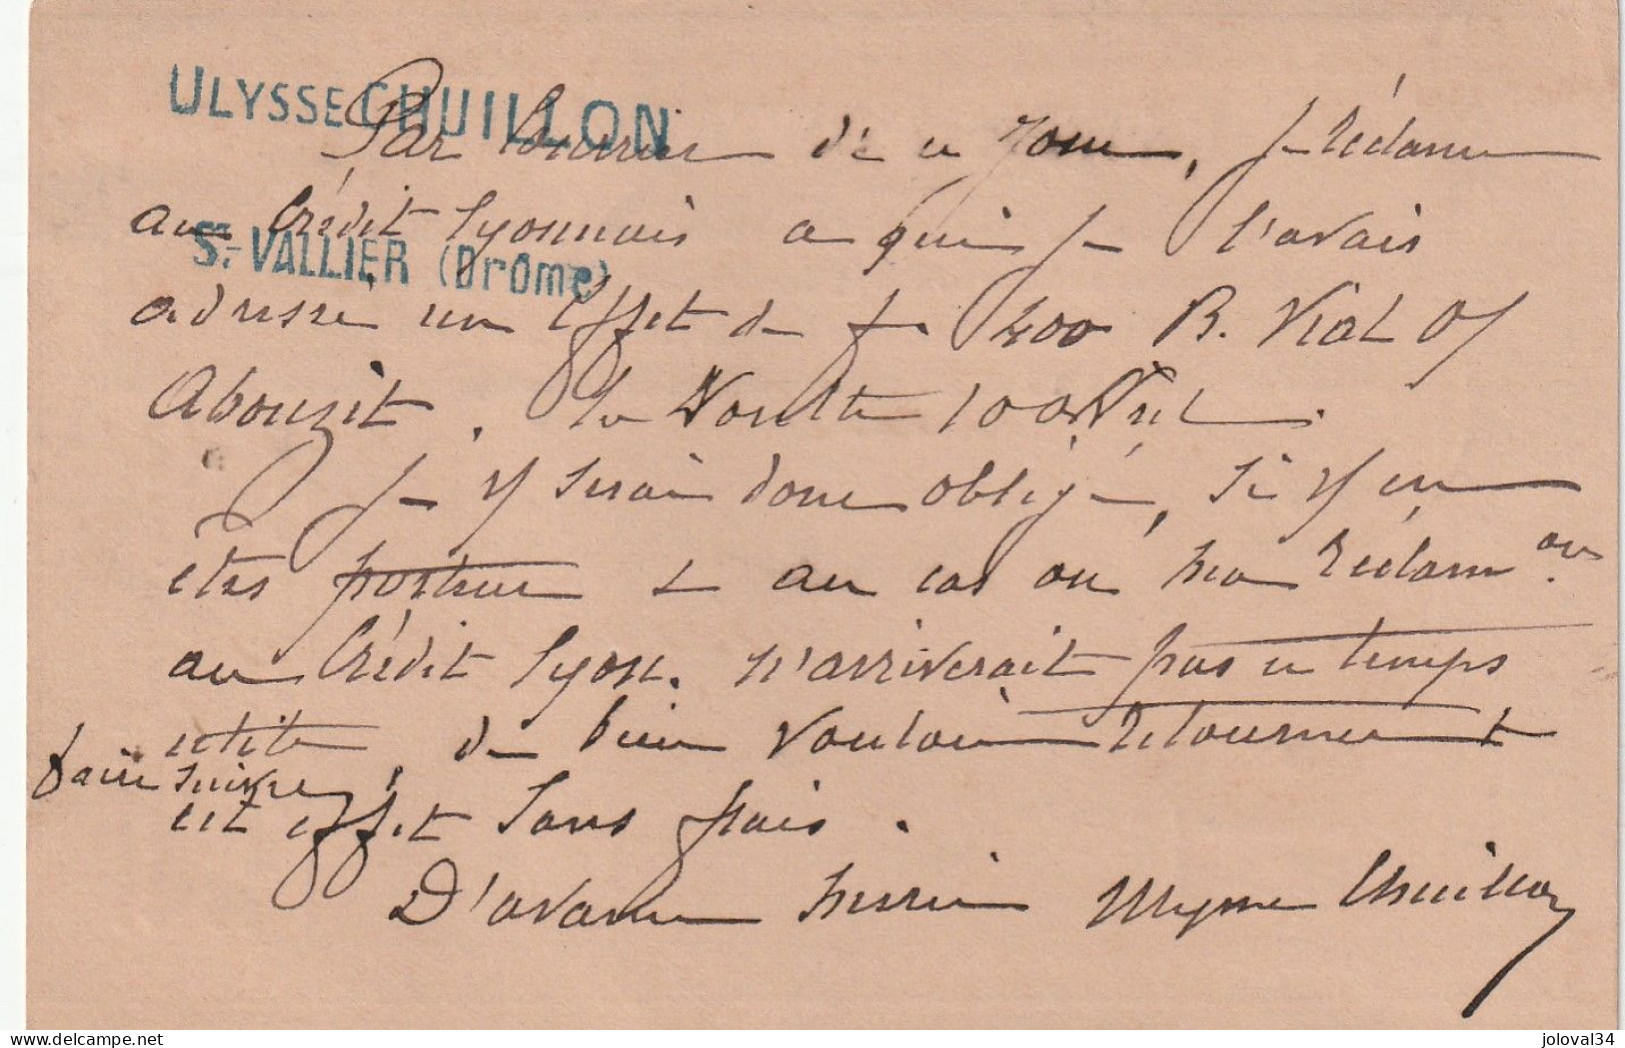 ULYSSE CHUILLON
Par Courrier de ce Jour, Je Réclame
au Crédit Lyonnais a qui Je l'avais
St. VALLIER (Drôme)
adressé un Effet de f. 400 B. Vial
Abouzit. la Voulte 10 Avril.
Je serais donc obligé, si en
êtes porteur & au cas ou ma Réclam.on
au Crédit Lyon. n'arriverait pas en temps
utile, de bien vouloir Retourner et
faire suivre
cet effet Sans frais.
D'avance merci Ulysse Chuillon
delcampe.net
joloval34